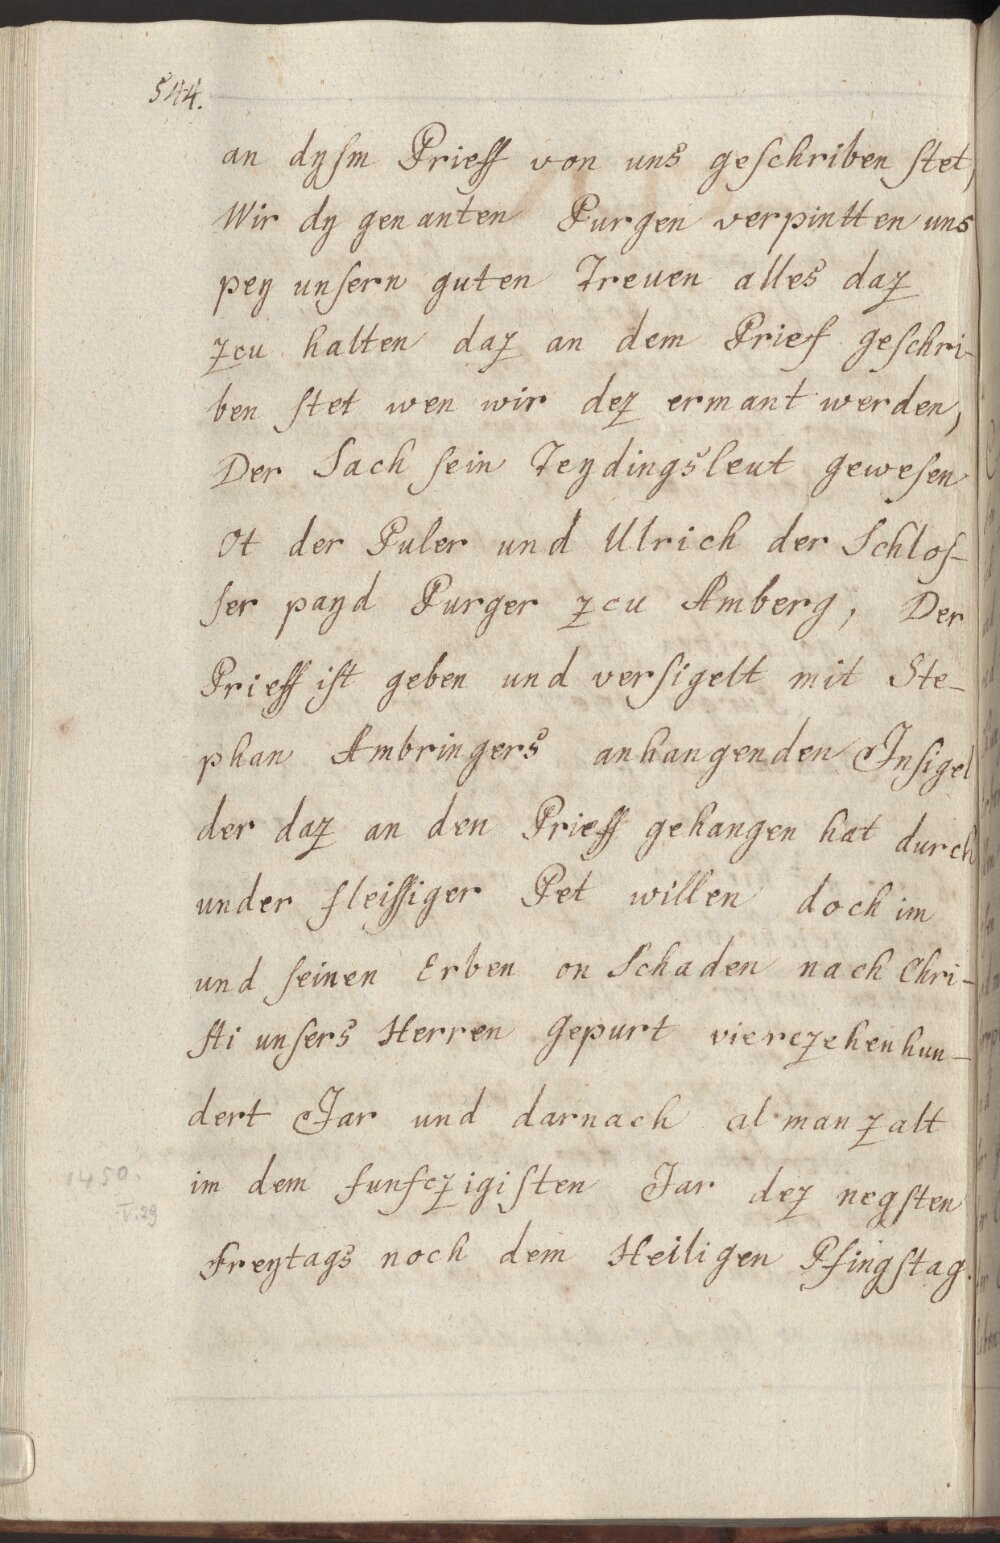 544.
an dysm Prieff von uns geschriben stet,
Wir dy genanten Purgen verpintten uns
pey unsern guten Treuen alles daz
zcu halten daz an dem Prief geschri-
ben stet wen wir dez ermant werden,
Der Sach sein Teydingsleut gewesen
Ot der Puler und Ulrich der Schlos-
ser payd Purger zcu Amberg, Der
Prieff ist geben und versigelt mit Ste-
phan Ambringers anhangenden Insigel
der daz an den Prieff gehangen hat durch
under fleissiger Pet willen doch im
und seinen Erben on Schaden nach Chri-
sti unsers Herren Gepurt vierczehenhun-
dert Jar und darnach al man zalt
im dem funfczigisten Jar dez negsten
Freytags noch dem Heiligen Pfingstag.
1450.
V.29